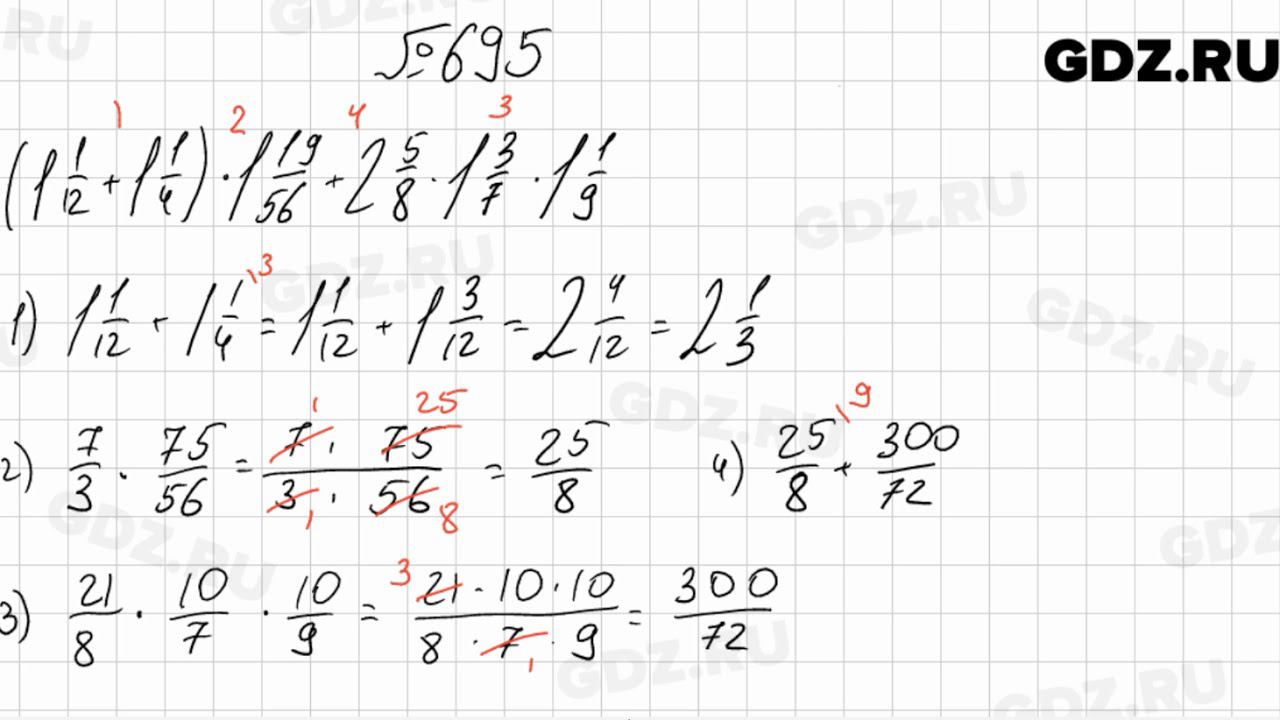 №695
GDZ.RU
1 2 4 3
(1 1/12 + 1 1/4) · 1 19/56 + 2 5/8 · 1 3/7 · 1 1/9
1) 1 1/12 + 1 1/4 \3 = 1 1/12 + 1 3/12 = 2 4/12 = 2 1/3
2) 7/3 · 75/56 = 7 · 75 25/3 1 · 56 8 = 25/8
4) 25/8 \9 + 300/72
3) 21/8 · 10/7 · 10/9 = 3 21 · 10 · 10/8 · 7 1 · 9 = 300/72